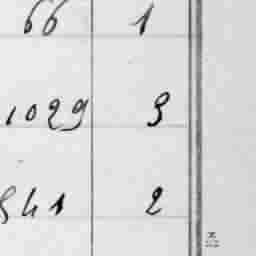 66 1
1029 3
541 2